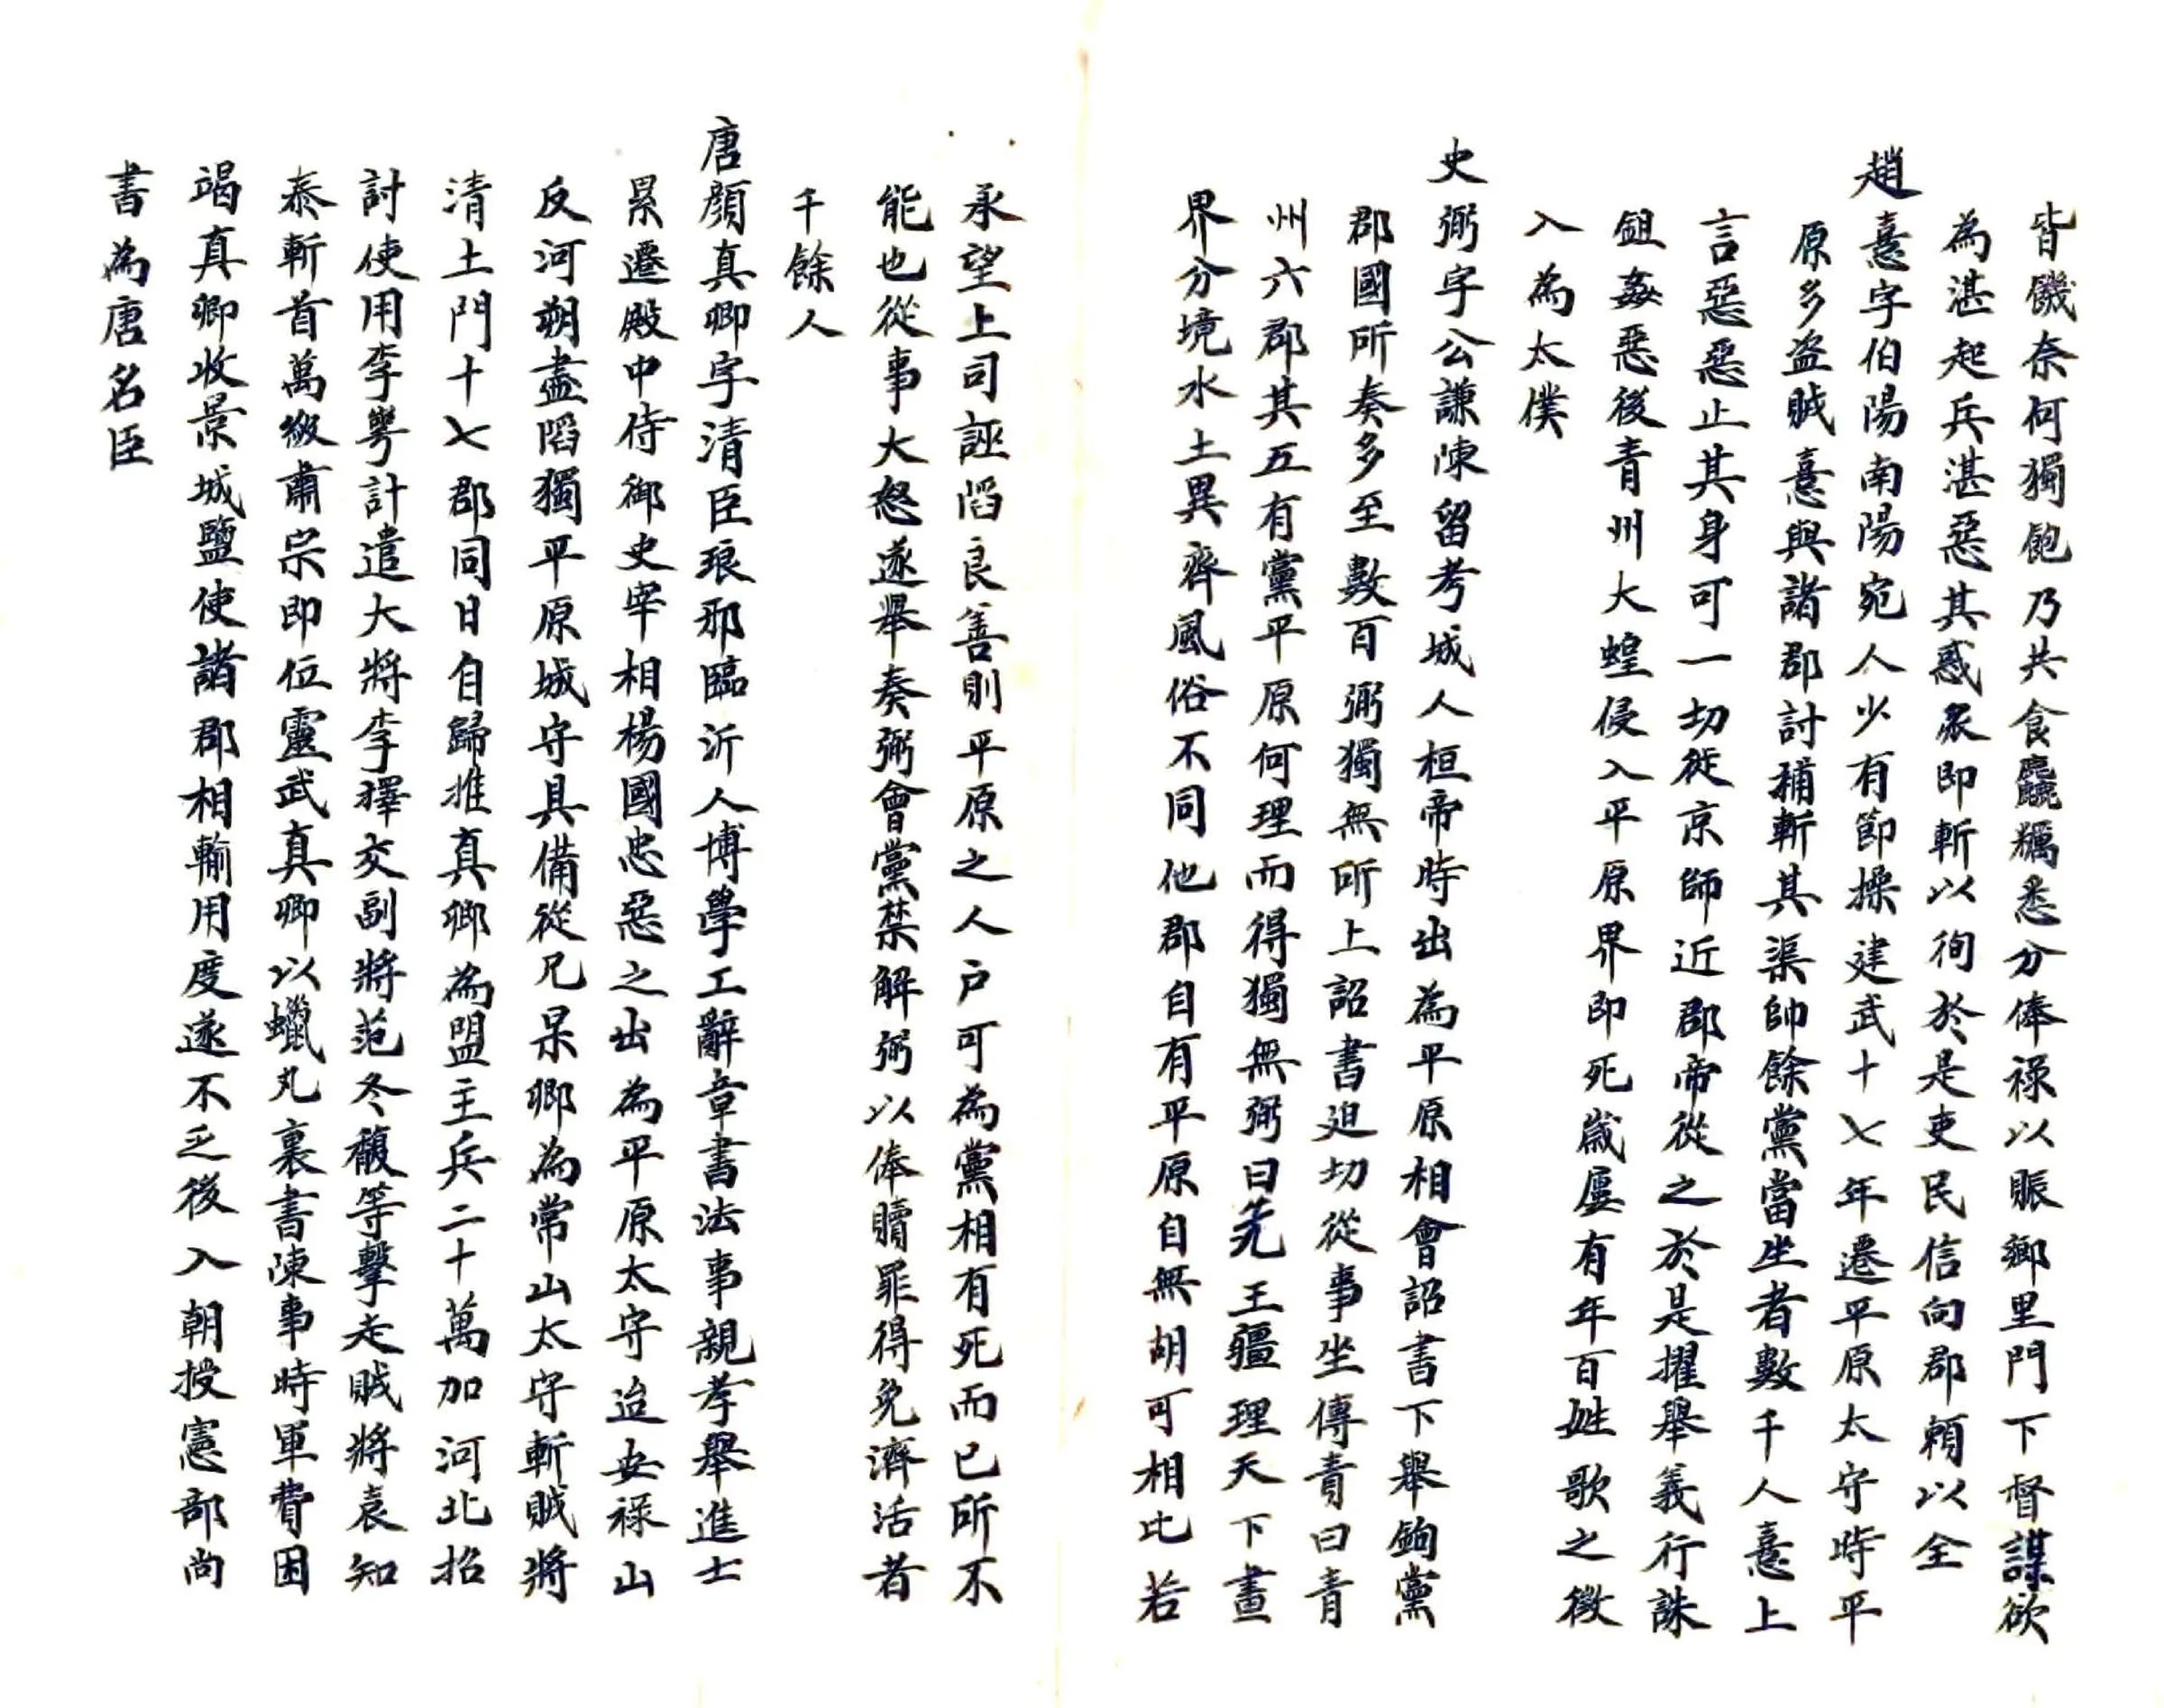 皆饑奈何獨飽乃共食麤糲悉分俸祿以賑鄉里門下督謀欲
為湛起兵湛惡其惑眾即斬以徇於是吏民信向郡賴以全
趙憙字伯陽南陽宛人少有節操建武十七年遷平原太守時平
原多盜賊憙與諸郡討捕斬其渠帥餘黨當坐者數千人憙上
言惡惡止其身可一切徙京師近郡帝從之於是擢舉義行誅
鉏姦惡後青州大蝗侵入平原界即死歲屢有年百姓歌之徵
入為太僕
史弼字公謙陳留考城人桓帝時出為平原相會詔書下舉鉤黨
郡國所奏多至數百弼獨無所上詔書迫切從事坐傳責曰青
州六郡其五有黨平原何理而得獨無弼曰先王疆理天下畫
界分境水土異齊風俗不同他郡自有平原自無胡可相比若
承望上司誣陷良善則平原之人戶可為黨相有死而已所不
能也從事大怒遂舉奏弼會黨禁解弼以俸贖罪得免濟活者
千餘人
唐顏真卿字清臣琅邪臨沂人博學工辭章書法事親孝舉進士
累遷殿中侍御史宰相楊國忠惡之出為平原太守迨安祿山
反河朔盡陷獨平原城守具備從兄杲卿為常山太守斬賊將
清土門十七郡同日自歸推真卿為盟主兵二十萬加河北招
討使用李萼計遣大將李擇交副將范冬馥等擊走賊將袁知
泰斬首萬級肅宗即位靈武真卿以蠟丸裏書陳事時軍費困
竭真卿收景城鹽使諸郡相輸用度遂不乏後入朝授憲部尚
書為唐名臣